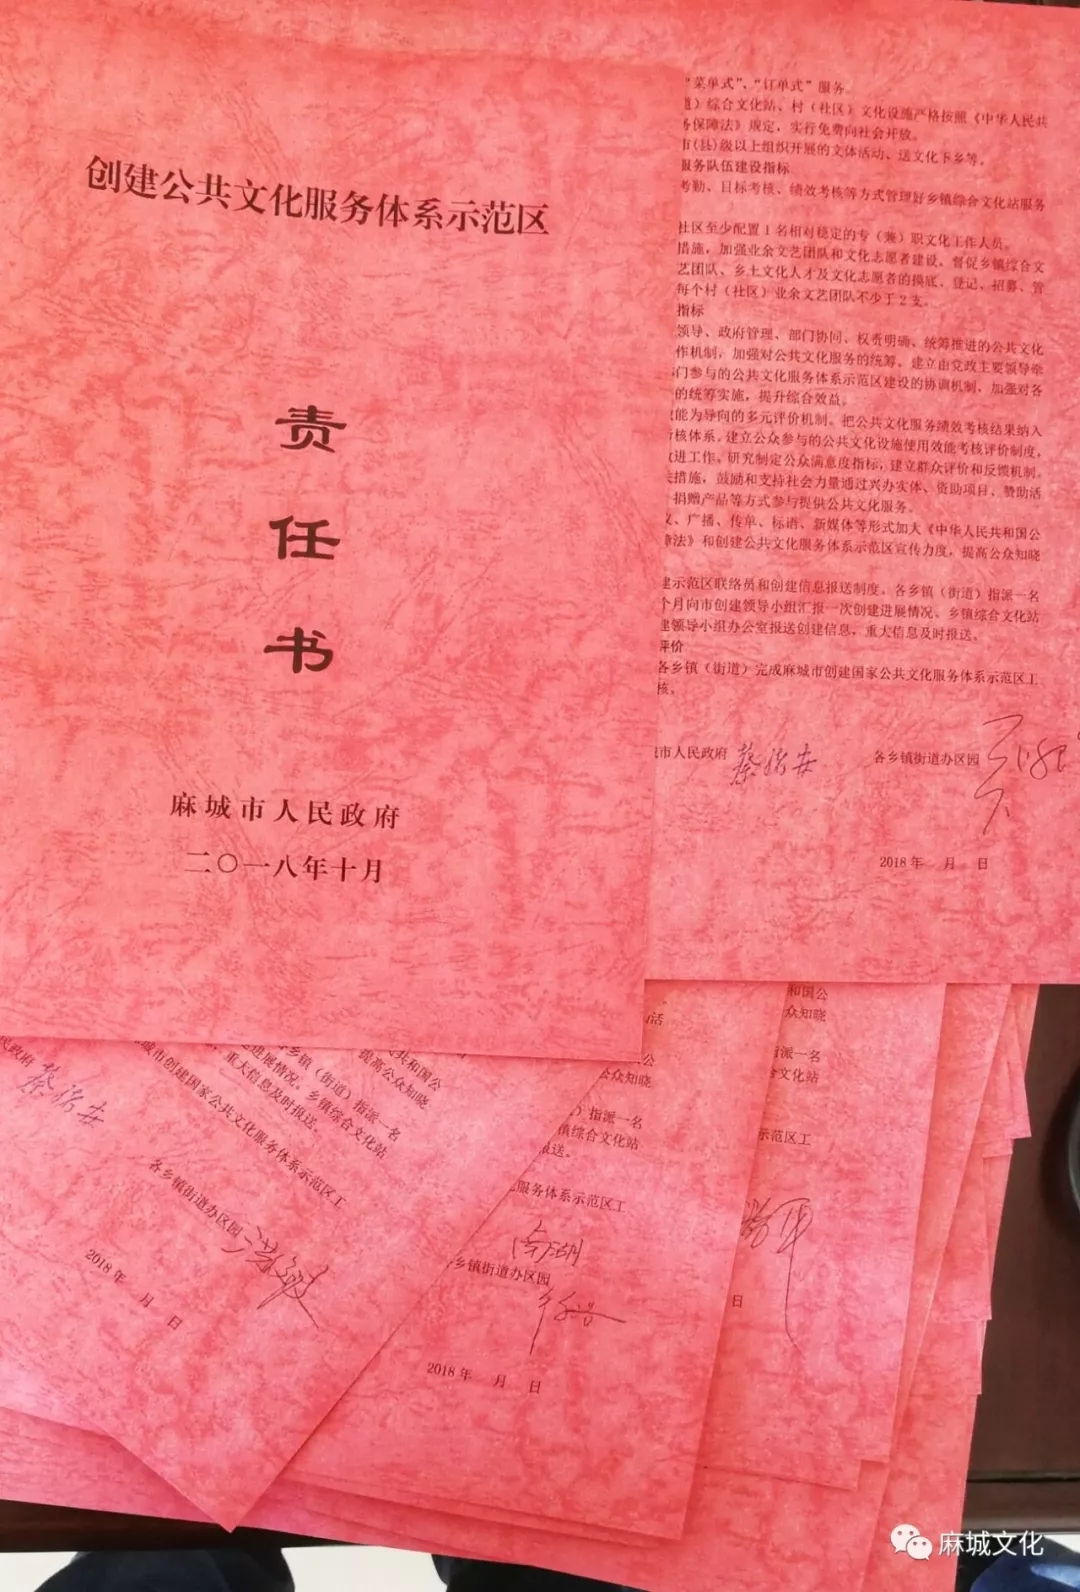 创建公共文化服务体系示范区
责
任
书
麻城市人民政府
二〇一八年十月
“菜单式”、“订单式”服务。
道）综合文化站、村（社区）文化设施严格按照《中华人民共
务保障法》规定，实行免费向社会开放。
市(县)级以上组织开展的文体活动、送文化下乡等。
服务队伍建设指标
考勤、目标考核、绩效考核等方式管理好乡镇综合文化站服务
社区至少配置1名相对稳定的专（兼）职文化工作人员。
措施，加强业余文艺团队和文化志愿者建设。督促乡镇综合文
艺团队、乡土文化人才及文化志愿者的摸底、登记、招募、管
每个村（社区）业余文艺团队不少于2支。
指标
领导、政府管理、部门协同、权责明确、统筹推进的公共文化
作机制，加强对公共文化服务的统筹。建立由党政主要领导牵
门参与的公共文化服务体系示范区建设的协调机制，加强对各
的统筹实施，提升综合效益。
效能为导向的多元评价机制。把公共文化服务绩效考核结果纳入
核体系。建立公众参与的公共文化设施使用效能考核评价制度，
改进工作。研究制定公众满意度指标，建立群众评价和反馈机制。
措施，鼓励和支持社会力量通过兴办实体、资助项目、赞助活
捐赠产品等方式参与提供公共文化服务。
、广播、传单、标语、新媒体等形式加大《中华人民共和国公
障法》和创建公共文化服务体系示范区宣传力度，提高公众知晓
建示范区联络员和创建信息报送制度。各乡镇（街道）指派一名
个月向市创建领导小组汇报一次创建进展情况。乡镇综合文化站
建领导小组办公室报送创建信息，重大信息及时报送。
评价
各乡镇（街道）完成麻城市创建国家公共文化服务体系示范区工
核。
城市人民政府
各乡镇街道办区园
2018年 月 日
共和国公
提高公众知晓
各乡镇（街道）指派一名
进展情况。乡镇综合文化站
重大信息及时报送。
城市创建国家公共文化服务体系示范区工
民政府
各乡镇街道办区园
2018年 月 日
公
公众知晓
）指派一名
镇综合文化站
报送。
服务体系示范区工
南湖
乡镇街道办区园
2018年 月 日
活
和国公
众知晓
指派一名
合文化站
示范区工
日
麻城文化